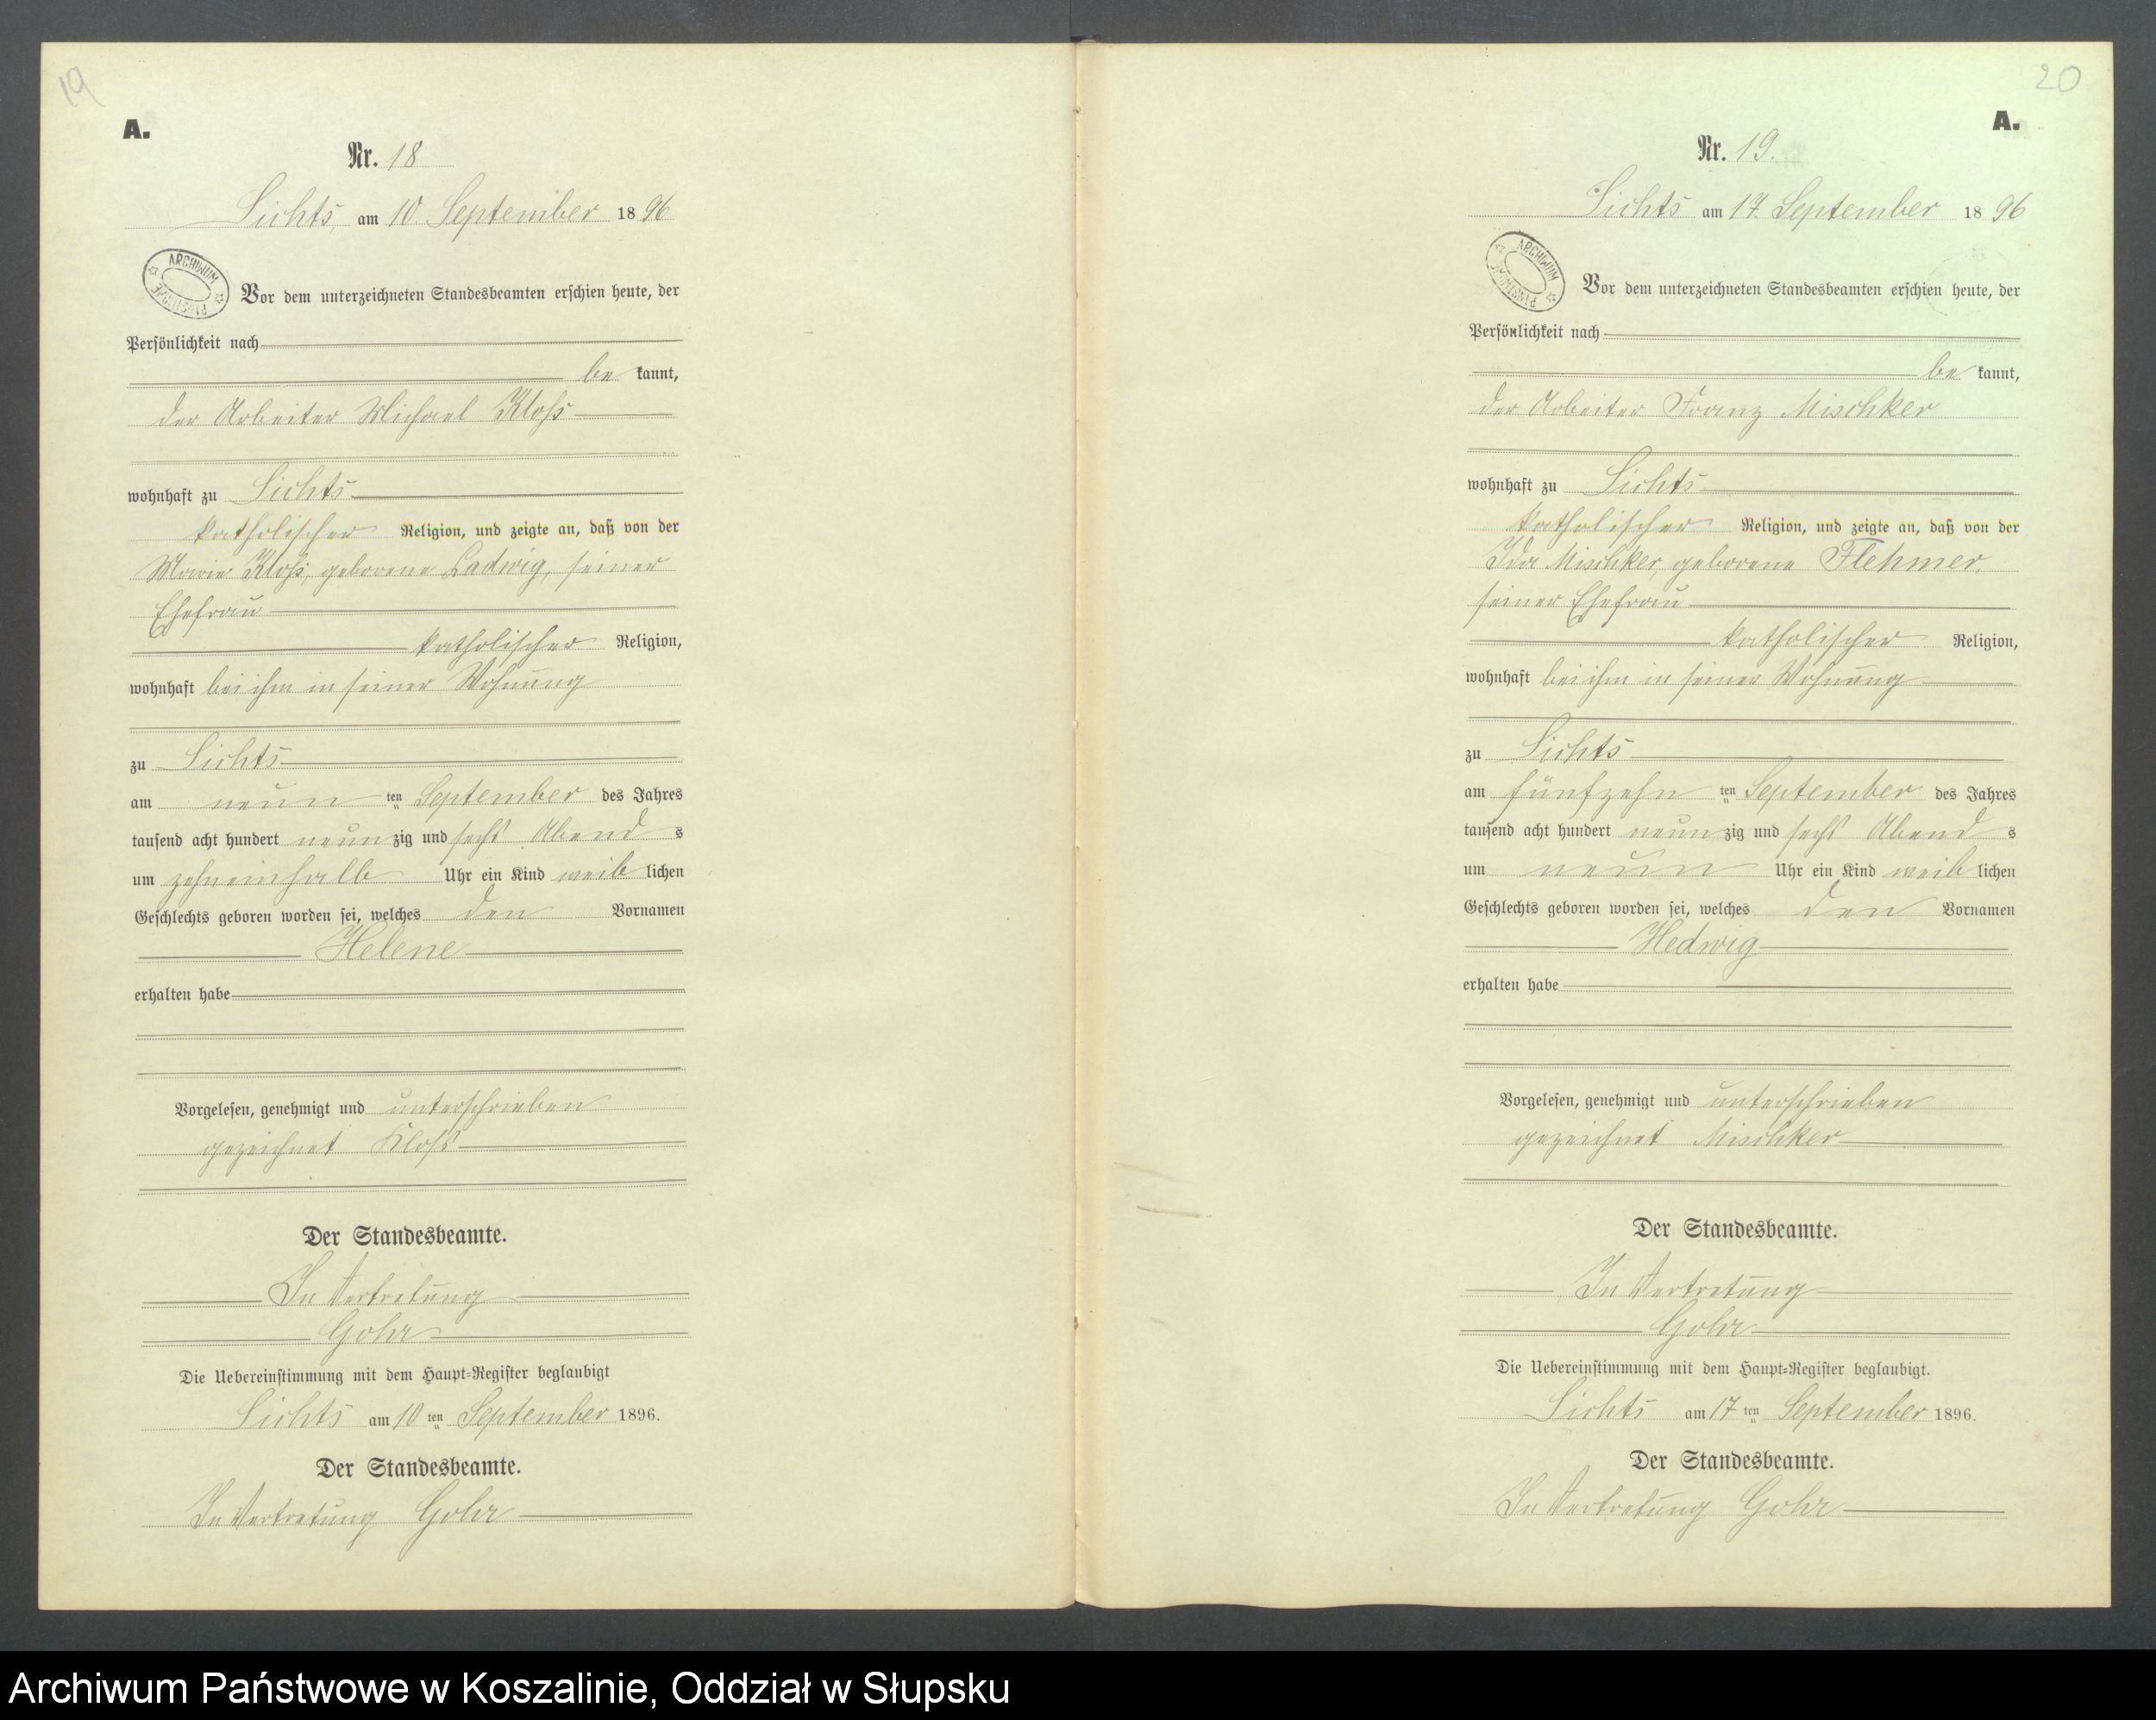 19
A.
Nr. 18
Lichts, am 10. September 1896
ARCHIWUM PAŃSTWOWE
Vor dem unterzeichneten Standesbeamten erschien heute, der
Persönlichkeit nach
be kannt,
der Arbeiter Michael Kloß
wohnhaft zu Lichts
katholischer Religion, und zeigte an, daß von der
Marie Kloß, geborene Ladwig, seiner
Ehefrau
katholischer Religion,
wohnhaft bei ihm in seiner Wohnung
zu Lichts
am neun ten September des Jahres
tausend acht hundert neun zig und sechs Abend s
um zehneinhalb Uhr ein Kind weib lichen
Geschlechts geboren worden sei, welches den Vornamen
Helene
erhalten habe
Vorgelesen, genehmigt und unterschrieben
gezeichnet Kloß
Der Standesbeamte.
In Vertretung
Gohr
Die Uebereinstimmung mit dem Haupt-Register beglaubigt
Lichts am 10 ten September 1896.
Der Standesbeamte.
In Vertretung Gohr
20
A.
Nr. 19.
Lichts am 17. September 1896
ARCHIWUM PAŃSTWOWE
Vor dem unterzeichneten Standesbeamten erschien heute, der
Persönlichkeit nach
be kannt,
der Arbeiter Franz Mischker
wohnhaft zu Lichts
katholischer Religion, und zeigte an, daß von der
Ida Mischker, geborene Flehmer,
seiner Ehefrau
katholischer Religion,
wohnhaft bei ihm in seiner Wohnung
zu Lichts
am fünfzehn ten September des Jahres
tausend acht hundert neun zig und sechs Abend s
um neun Uhr ein Kind weib lichen
Geschlechts geboren worden sei, welches den Vornamen
Hedwig
erhalten habe
Vorgelesen, genehmigt und unterschrieben
gezeichnet Mischker
Der Standesbeamte.
In Vertretung
Gohr
Die Uebereinstimmung mit dem Haupt-Register beglaubigt.
Lichts am 17 ten September 1896.
Der Standesbeamte.
In Vertretung Gohr
Archiwum Państwowe w Koszalinie, Oddział w Słupsku